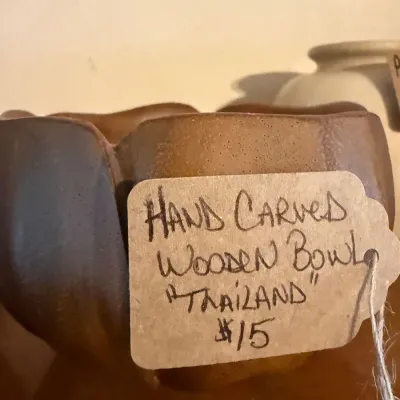 HAND CARVED
WOODEN BOWL
"THAILAND"
$15